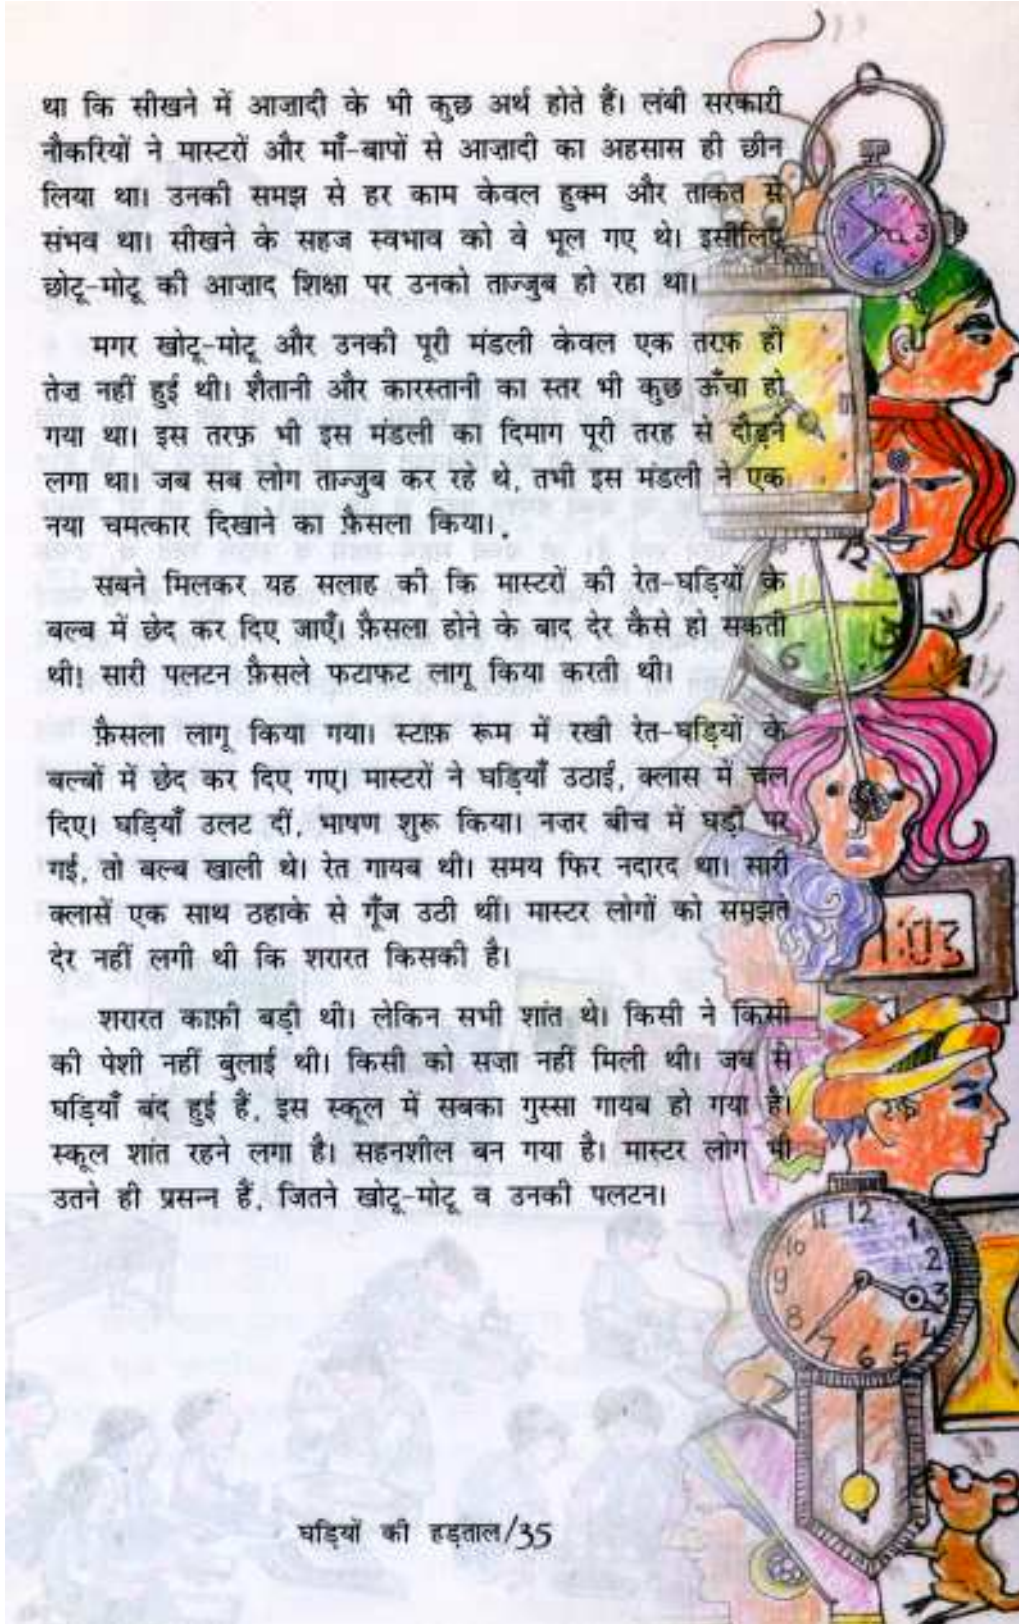 था कि सीखने में आज़ादी के भी कुछ अर्थ होते हैं। लंबी सरकारी
नौकरियों ने मास्टरों और माँ-बापों से आज़ादी का अहसास ही छीन
लिया था। उनकी समझ से हर काम केवल हुक्म और ताकत से
संभव था। सीखने के सहज स्वभाव को वे भूल गए थे। इसीलिए
छोटू-मोटू की आज़ाद शिक्षा पर उनको ताज्जुब हो रहा था।
मगर खोटू-मोटू और उनकी पूरी मंडली केवल एक तरफ़ ही
तेज़ नहीं हुई थी। शैतानी और कारस्तानी का स्तर भी कुछ ऊँचा हो
गया था। इस तरफ़ भी इस मंडली का दिमाग पूरी तरह से दौड़ने
लगा था। जब सब लोग ताज्जुब कर रहे थे, तभी इस मंडली ने एक
नया चमत्कार दिखाने का फ़ैसला किया।
सबने मिलकर यह सलाह की कि मास्टरों की रेत-घड़ियों के
बल्ब में छेद कर दिए जाएँ। फ़ैसला होने के बाद देर कैसे हो सकती
थी! सारी पलटन फ़ैसले फटाफट लागू किया करती थी।
फ़ैसला लागू किया गया। स्टाफ़ रूम में रखी रेत-घड़ियों के
बल्बों में छेद कर दिए गए। मास्टरों ने घड़ियाँ उठाईं, क्लास में चल
दिए। घड़ियाँ उलट दीं, भाषण शुरू किया। नज़र बीच में घड़ी पर
गई, तो बल्ब खाली थे। रेत गायब थी। समय फिर नदारद था। सारी
क्लासें एक साथ ठहाके से गूँज उठी थीं। मास्टर लोगों को समझते
देर नहीं लगी थी कि शरारत किसकी है।
शरारत काफ़ी बड़ी थी। लेकिन सभी शांत थे। किसी ने किसी
की पेशी नहीं बुलाई थी। किसी को सज़ा नहीं मिली थी। जब से
घड़ियाँ बंद हुई हैं, इस स्कूल में सबका गुस्सा गायब हो गया है।
स्कूल शांत रहने लगा है। सहनशील बन गया है। मास्टर लोग भी
उतने ही प्रसन्न हैं, जितने खोटू-मोटू व उनकी पलटन।
12
3
6
12
3
6
1:03
11 12 1
10 2
9 3
8 4
7 6 5
घड़ियों की हड़ताल/35